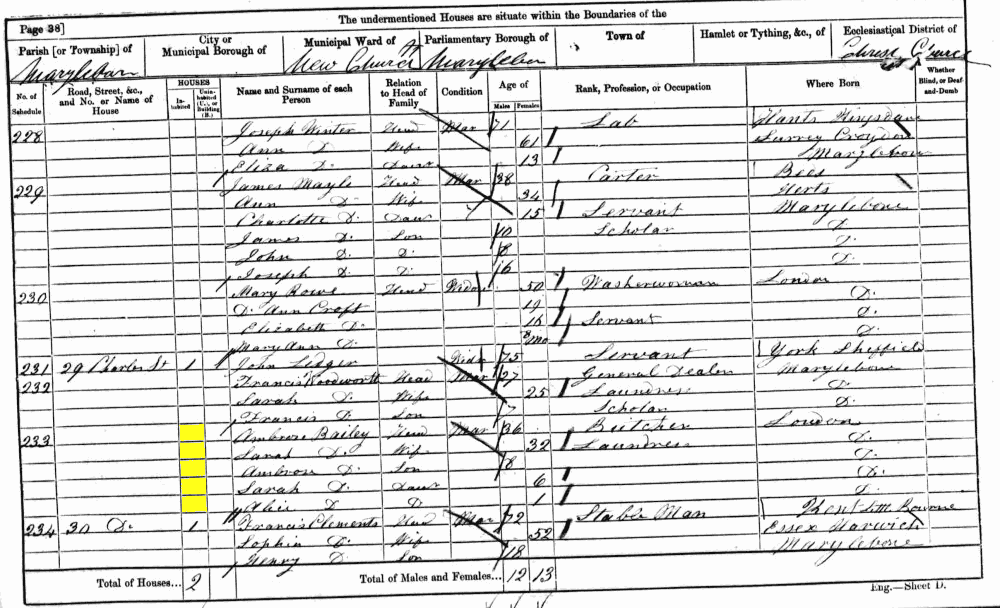 The undermentioned Houses are situate within the Boundaries of the
Page 38]
Parish [or Township] of Marylebon
City or Municipal Borough of
Municipal Ward of New Church St
Parliamentary Borough of Marylebon
Town of
Hamlet or Tything, &c., of
Ecclesiastical District of Christ Church
No. of Schedule | Road, Street, &c., and No. or Name of House | HOUSES In-habited | Unin-habited (U.), or Building (B.) | Name and Surname of each Person | Relation to Head of Family | Condition | Age of Males | Females | Rank, Profession, or Occupation | Where Born | Whether Blind, or Deaf-and-Dumb
228 Joseph Winter Head Mar 71 Lab Hants
Ann Do Wife 61 Surrey Croydon
Eliza Do Daur 13 Marylebone
229 James Mayle Head Mar 38 Carter Beds
Ann Do Wife 34 Herts
Charlotte Do Daur 15 Servant Marylebone
James Do Son 10 Scholar Do
John Do Do 8 Do
Joseph Do Do 6 Do
230 Mary Rowe Head Widow 50 Washerwoman London
Do Ann Croft 19 Do
Elizabeth Do 16 Servant Do
Mary Ann Do 8 Mo Do
231 29 Charles St 1 John Ledger Widr 75 Servant York Sheffield
232 Francis Woodworth Head Mar 27 General Dealer Marylebone
Sarah Do Wife 25 Laundress Do
Francis Do Son 7 Scholar Do
233 Ambrose Bailey Head Mar 36 Butcher London
Sarah Do Wife 32 Laundress Do
Ambrose Do Son 8 Do
Sarah Do Daur 6 Do
Alice Do Do 1 Do
234 30 Do 1 Francis Clements Head Mar 72 Stable Man Kent Bourne
Sophia Do Wife 52 Essex Harwich
Henry Do Son 18 Marylebone
Total of Houses... 2
Total of Males and Females... 12 13
Eng.—Sheet D.